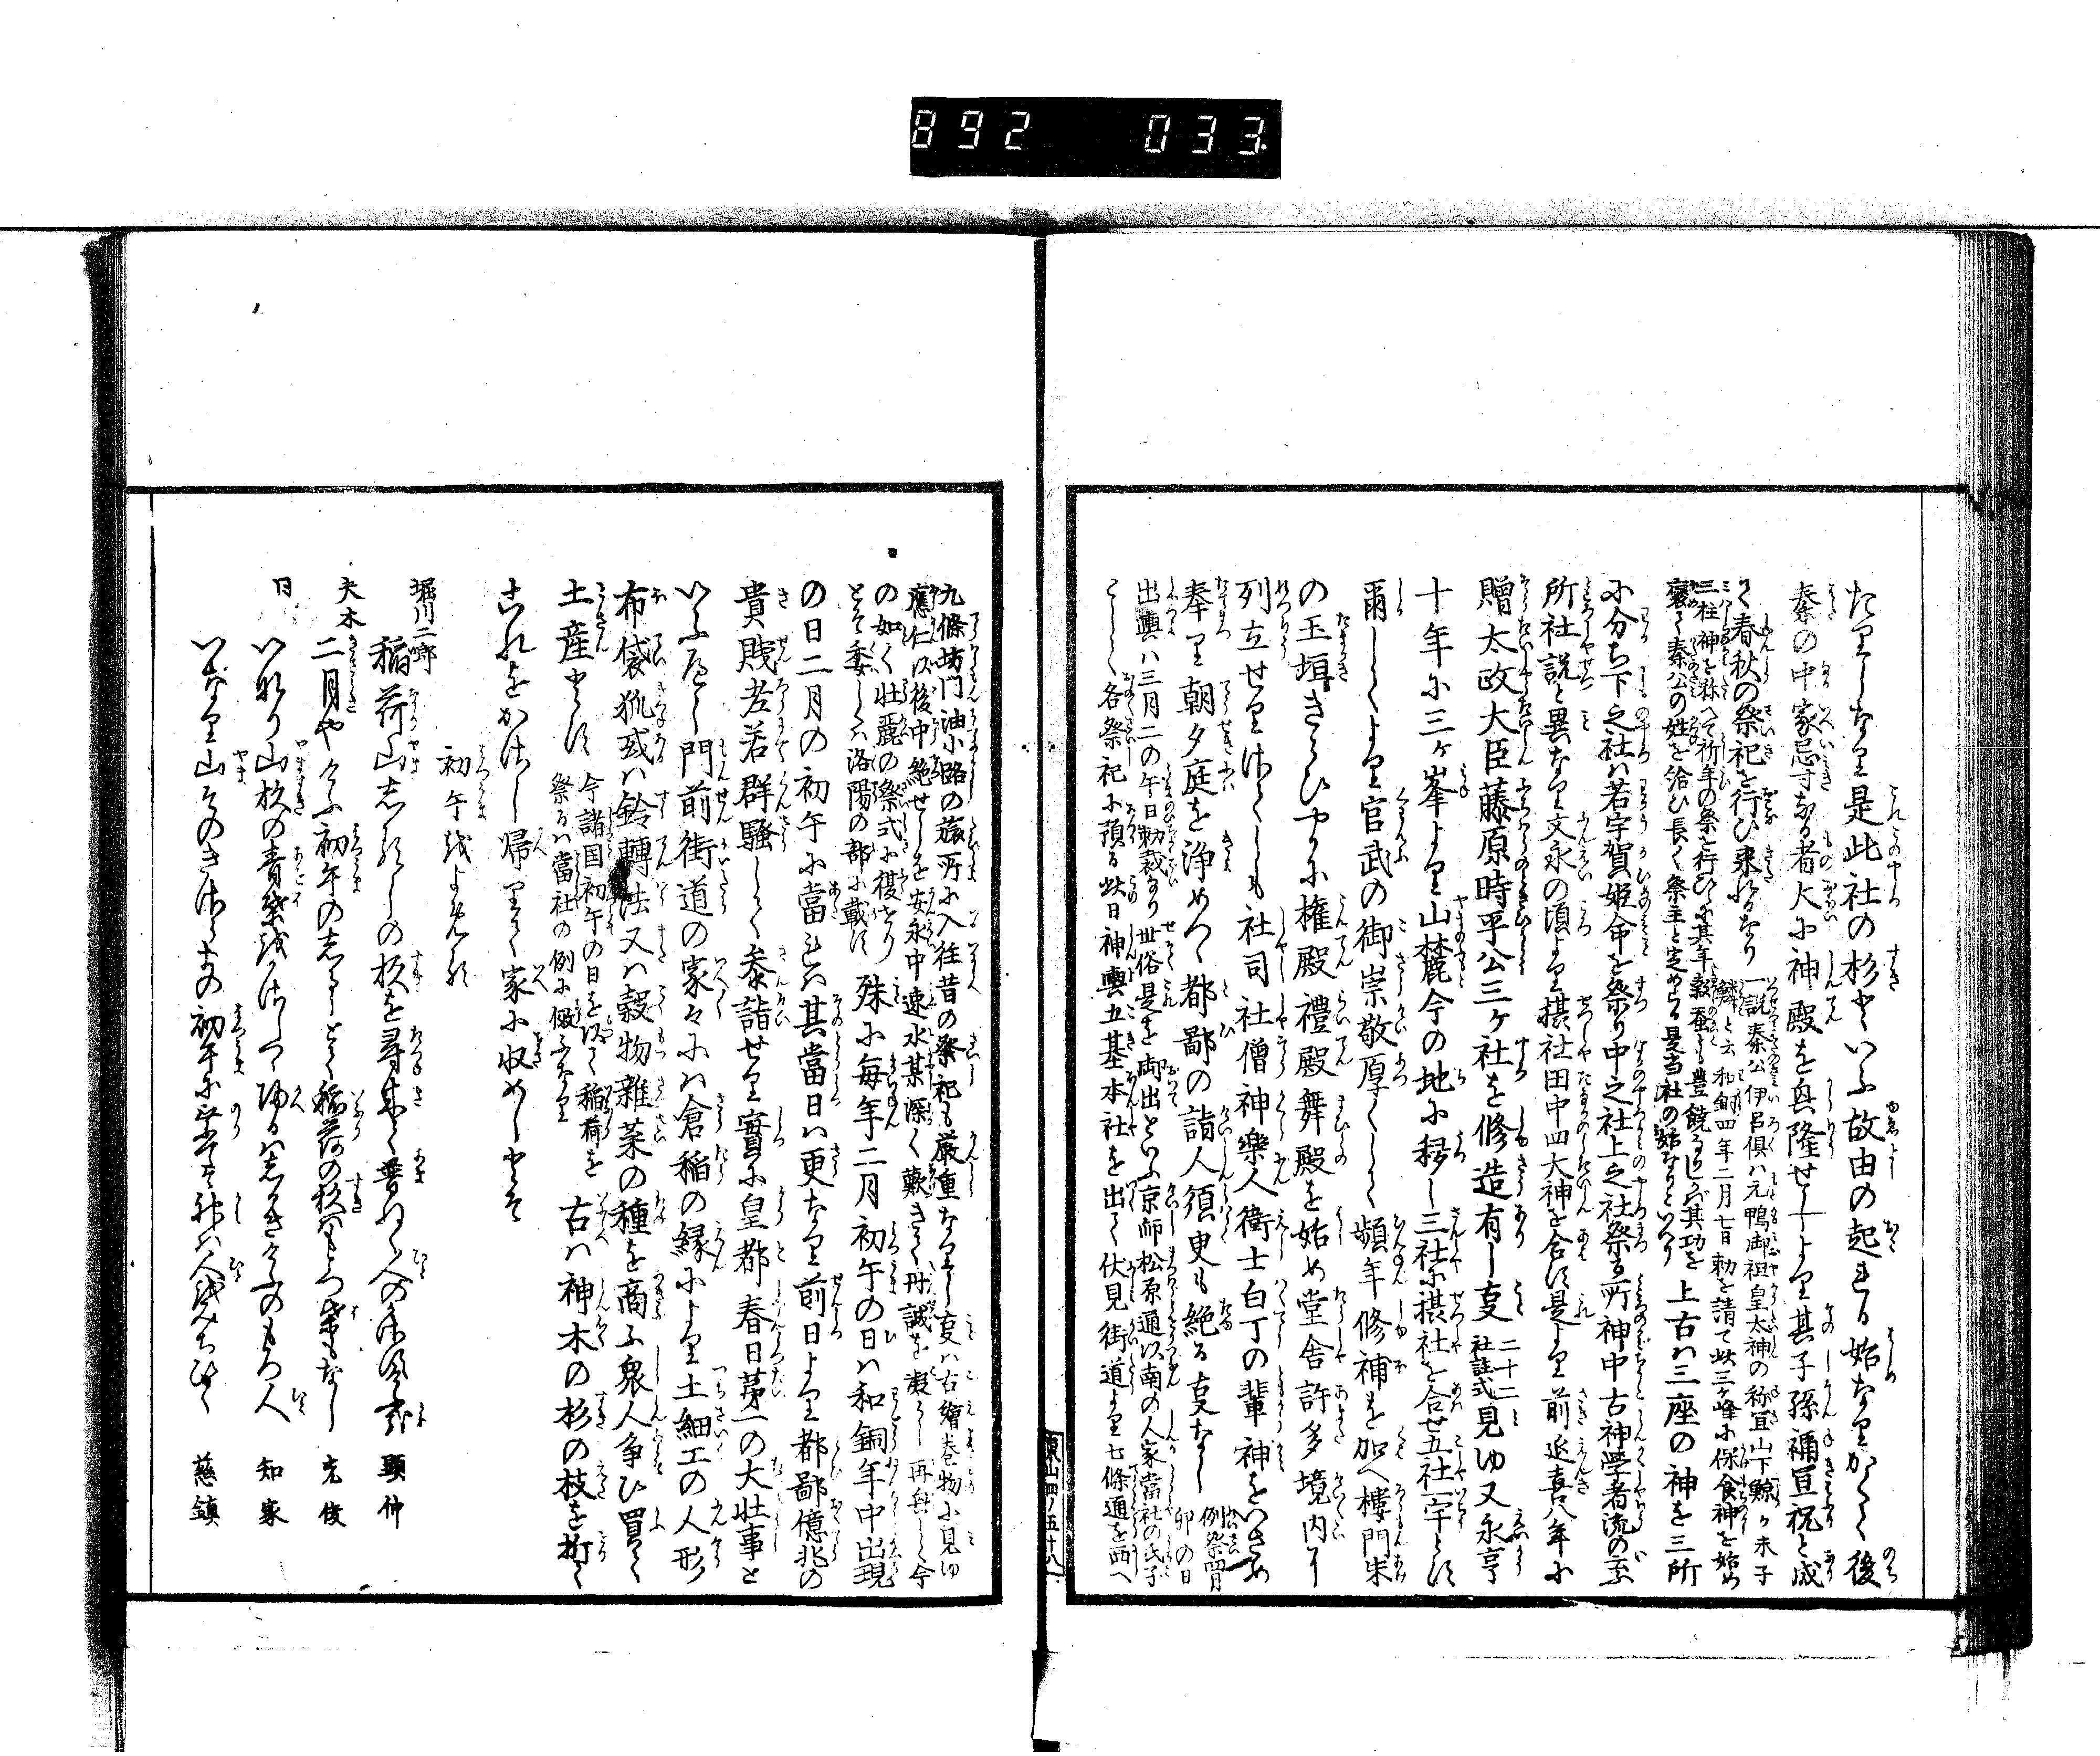 892 033
たりしなり是此社の杉といふ故由の起れる始なりかくて後
秦の中家忌寸なる者大に神殿を興隆せしより其子孫禰宜祝と成
て春秋の祭祀を行ひ来れるなり
一説秦公伊呂倶ハ元鴨御祖皇太神の称宜山下鯨ヶ末子
鱗と云和銅四年二月七日勅を請て此三ヶ峰に保食神を始め
三柱神を祢へて祈年の祭を行ひしに其年穀蚕とも豊饒なりしかバ其功を
褒て秦公の姓を給ひ長く祭主と定めらる是当社の始なりといへり
上古ハ三座の神を三所
に分ち下之社ハ若宇賀姫命を祭り中之社上之社祭る所神中古神学者流の云
所社説と異なり文永の頃より摂社田中四大神を合す是より前延喜八年に
贈太政大臣藤原時平公三ヶ社を修造有し事
二十二
社註式
見ゆ又永享
十年に三ヶ峯より山麓今の地に移し三社に摂社を合せ五社一宇とす
爾してより官武の御崇敬厚くして頻年修補を加へ樓門朱
の玉垣きらひやかに権殿禮殿舞殿を始め堂舎許多境内に
列立せりしかも社司社僧神樂人衛士白丁の輩神をいさめ
奉り朝夕庭を浄めて都鄙の詣人須臾も絶る事なし
例祭四月
卯の日
出輿ハ三月二の午日勅裁あり世俗是を御出といふ京師松原通以南の人家當社の氏子
にして各祭祀に預る此日神輿五基本社を出て伏見街道より七條通を西へ
東山四ノ五十八
九條坊門油小路の旅所に入往昔の祭祀も厳重なりし事ハ古繪巻物に見ゆ
應仁以後中絶せしを安永中速水某深く歎きて丹誠を凝らし再興して今
の如く壮麗の祭式に復せり
とそ委しくハ洛陽の部に載す
殊に毎年二月初午の日ハ和銅年中出現
の日二月の初午に當れハ其當日ハ更なり前日より都鄙億兆の
貴賎老若群騒して参詣せり實に皇都春日第一の大壮事と
いふへし門前街道の家々にハ倉稲の縁により土細工の人形
布袋狐或ハ鈴轉法又ハ穀物雑菜の種を商ふ衆人争ひ買て
土産とす
今諸国初午の日を以て稲荷を
祭るハ當社の例に倣ふなり
古ハ神木の杉の枝を折て
これをかさし帰りて家に収めしとそ
初午をよめる
堀川二郎
稲荷山しるしの杉を尋来て普ねく人のかさす哉 顕仲
夫木
二月やけふ初午のしるしとて稲荷の杉ハもとつ葉もなし 光俊
同
いなり山杉の青葉をかさしつゝ帰るハしるきけふのもろ人 知家
いなり山 初午に 神ハ人を 慈鎮